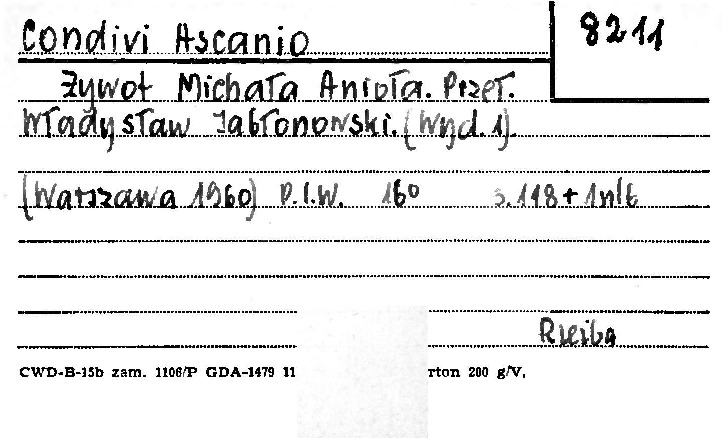 Condivi Ascanio
8211
Żywot Michała Anioła. Przeł.
Władysław Jabłonowski. (Wyd. 1).
(Warszawa 1960) P.I.W. 16° s. 118 + 1nlb
Rzeźba
CWD-B-15b zam. 1106/P GDA-1479 11 rton 200 g/V,